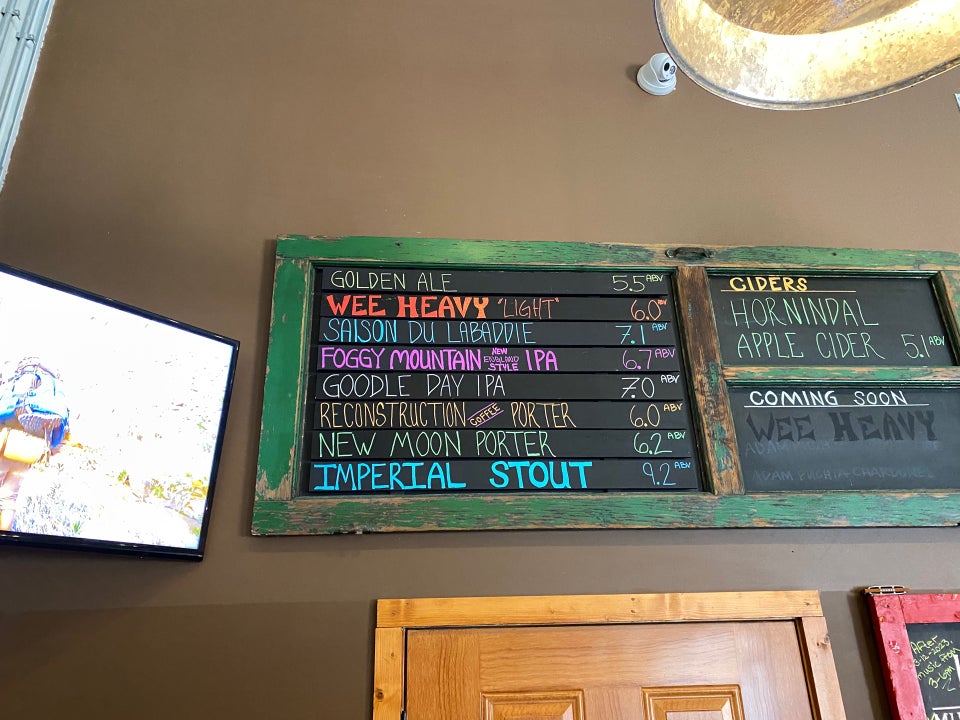 GOLDEN ALE 5.5 ABV
WEE HEAVY "LIGHT" 6.0 ABV
SAISON DU LABADDIE 7.1 ABV
FOGGY MOUNTAIN NEW ENGLAND STYLE IPA 6.7 ABV
GOODLE DAY IPA 7.0 ABV
RECONSTRUCTION COFFEE PORTER 6.0 ABV
NEW MOON PORTER 6.2 ABV
IMPERIAL STOUT 9.2 ABV
CIDERS
HORNINDAL
APPLE CIDER 5.1 ABV
COMING SOON
WEE HEAVY
After
music from
3-6pm